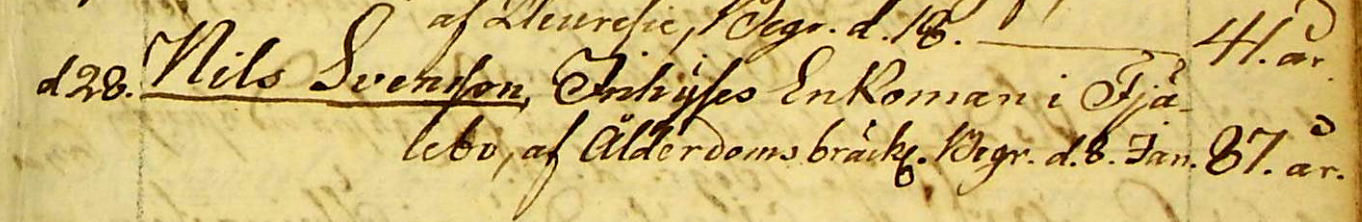 af Pleuresie, Begr. d. 18. 41. år.
d 28. Nils Svenson, Inhyses Enkoman i Fjä-
lebo, af Ålderdoms bräckl. Begr. d. 8. Jan. 87. år.